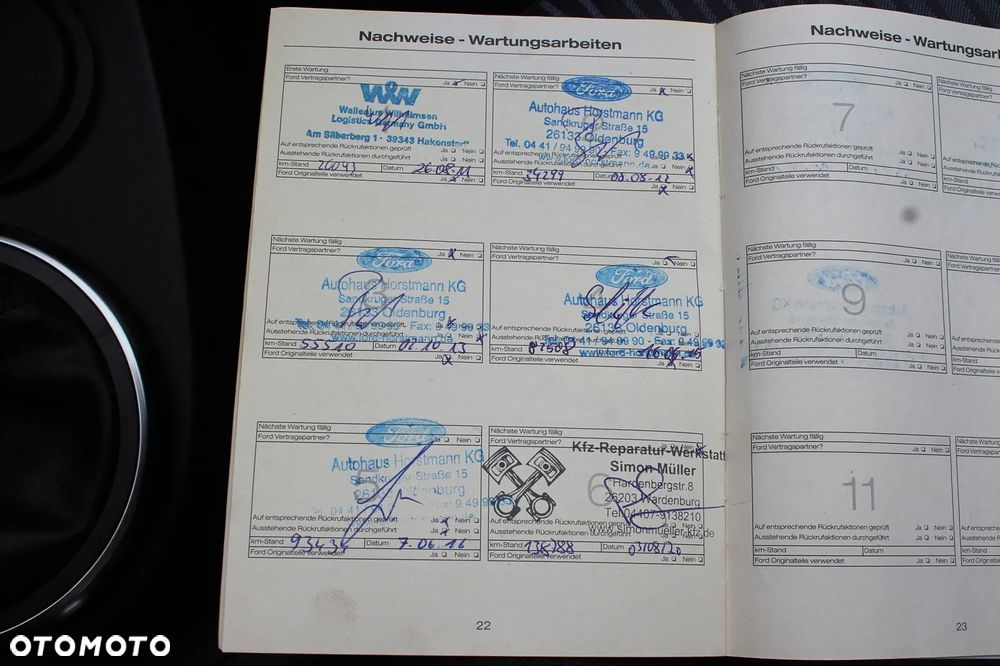 Nachweise - Wartungsarbeiten
Erste Wartung
Ford Vertragspartner? Ja Nein
W&W
Wallenius Wilhelmsen
Logistics Germany GmbH
Am Silberberg 1 · 39343 Hakenstedt
Auf entsprechende Rückrufaktionen geprüft Ja Nein
Ausstehende Rückrufaktionen durchgeführt Ja Nein
km-Stand Datum 26.08.11
Ford Originalteile verwendet Ja Nein
Nächste Wartung fällig
Ford Vertragspartner? Ja x Nein
Ford
Autohaus Horstmann KG
Sandkruger Straße 15
26133 Oldenburg
Tel. 04 41 / 94 99 90 - Fax: 9 49 99 33
www.ford-horstmann.de
Ausstehende Rückrufaktionen durchgeführt Ja Nein
km-Stand 34299 Datum
Ford Originalteile verwendet Ja x Nein
Nächste Wartung fällig
Ford Vertragspartner? Ja x Nein
Ford
Autohaus Horstmann KG
Sandkruger Straße 15
26133 Oldenburg
Auf entsprechende Rückrufaktionen geprüft
Fax: 9 49 99 33
Ausstehende Rückrufaktionen durchgeführt
km-Stand 55510 Datum 01.10.13
Ford Originalteile verwendet Ja x Nein
Nächste Wartung fällig
Ford Vertragspartner? Ja Nein
Ford
Autohaus Horstmann KG
Sandkruger Straße 15
26133 Oldenburg
Tel. 04 41 / 94 99 90 - Fax: 9 49 99 33
km-Stand 87508
Ford Originalteile verwendet Ja x Nein
Nächste Wartung fällig
Ford Vertragspartner? Ja Nein
Ford
Autohaus Horstmann KG
Sandkruger Straße 15
Oldenburg
5
Auf entsprechende Rückrufaktionen geprüft Ja x Nein
Ausstehende Rückrufaktionen durchgeführt Ja x Nein
km-Stand 93434 Datum 7.06.16
Ford Originalteile verwendet Ja Nein
Nächste Wartung fällig
Ford Vertragspartner? Ja Nein
Kfz-Reparatur-Werkstatt
Simon Müller
Hardenbergstr.8
26203 Wardenburg
Tel.04407-9138210
www.Simonmueller-kfz.de
6
km-Stand 138788 Datum 03/08/20
Ford Originalteile verwendet Ja Nein
22
Nachweise - Wartungsar
Nächste Wartung fällig
Ford Vertragspartner? Ja Nein
7
Auf entsprechende Rückrufaktionen geprüft Ja Nein
Ausstehende Rückrufaktionen durchgeführt Ja Nein
km-Stand Datum
Ford Originalteile verwendet Ja Nein
Nächste Wartung
Ford Vertragspar
Auf entsprechende
Ausstehende Rück
km-Stand
Ford Originalteile
Nächste Wartung fällig
Ford Vertragspartner? Ja Nein
9
Auf entsprechende Rückrufaktionen geprüft Ja Nein
Ausstehende Rückrufaktionen durchgeführt Ja Nein
km-Stand Datum
Ford Originalteile verwendet Ja Nein
Nächste Wartung
Ford Vertragspa
Auf entsprechend
Ausstehende Rüc
km-Stand
Ford Originalteile
Nächste Wartung fällig
Ford Vertragspartner? Ja Nein
11
Auf entsprechende Rückrufaktionen geprüft Ja Nein
Ausstehende Rückrufaktionen durchgeführt Ja Nein
km-Stand Datum
Ford Originalteile verwendet Ja Nein
Nächste Wartun
Ford Vertragspa
Auf entsprechen
Ausstehende Rü
km-Stand
Ford Originalteil
23
OTOMOTO